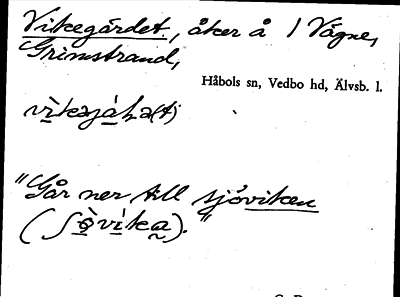 Vikegärdet, åker å 1 Vägne,
Grimstrand,
Håbols sn, Vedbo hd, Älvsb. l.
"Går ner till sjöviken